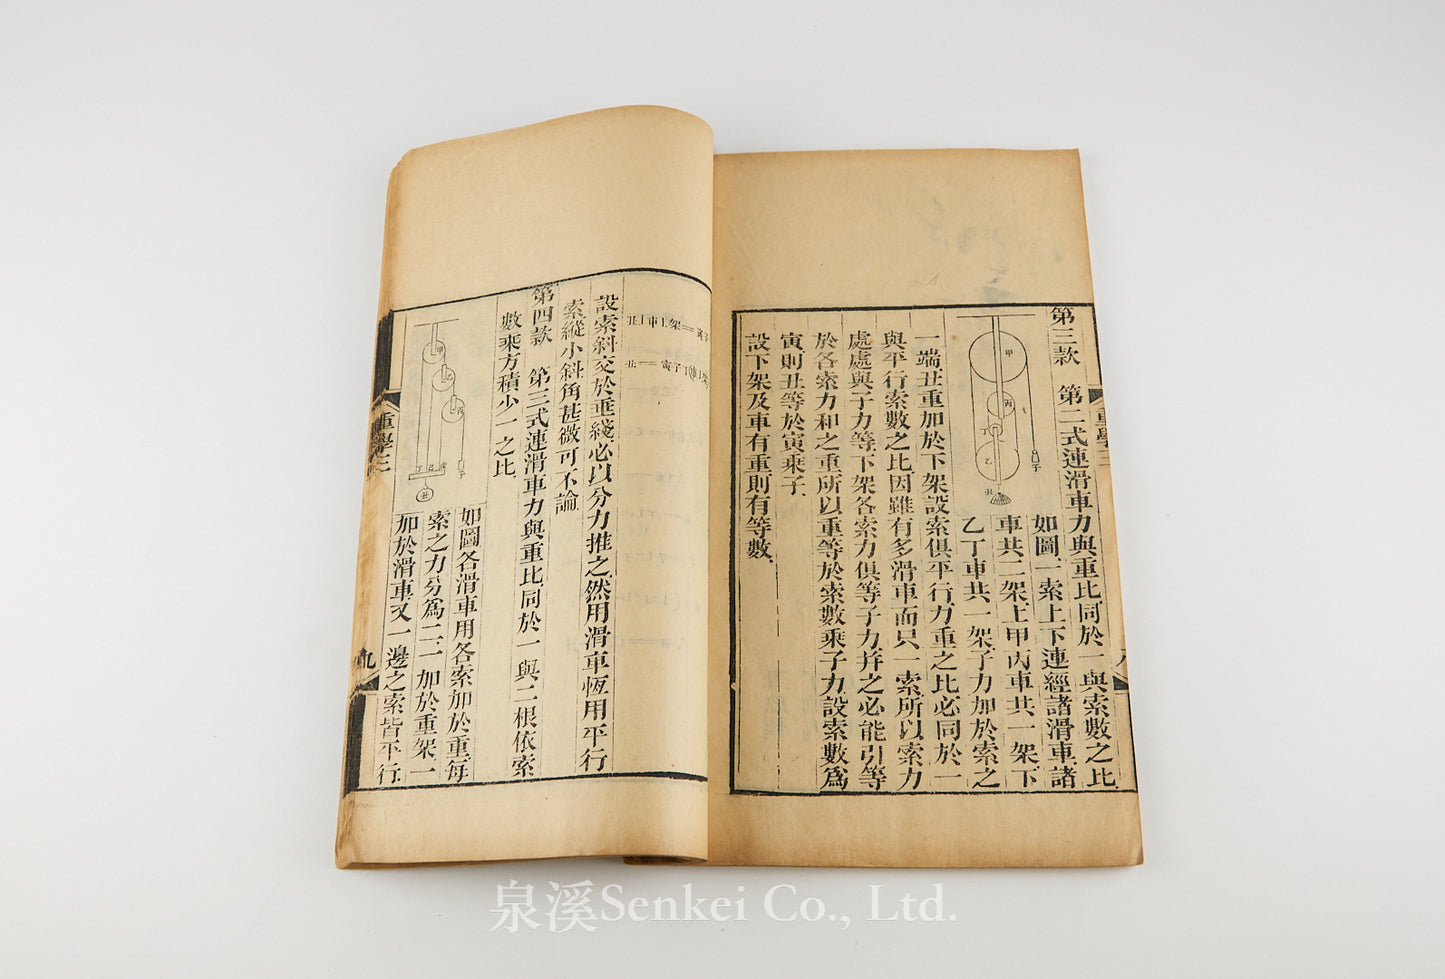 第三款　第二式連滑車力與重比同於一與索數之比
甲
丙
丁
乙
子
丑
如圖一索上下連經諸滑車諸
車共二架上甲丙車共一架下
乙丁車共一架子力加於索之
一端丑重加於下架設索俱平行力重之比必同於一
與平行索數之比因雖有多滑車而只一索所以索力
處處與子力等下架各索力俱等子力幷之必能引等
於各索力和之重所以重等於索數乘子力設索數爲
寅則丑等於寅乘子
設下架及車有重則有等數
重學三
八
丑⊥車⊥架＝寅子
設索斜交於垂綫必以分力推之然用滑車恆用平行
索縱小斜角甚微可不論
第四款　第三式連滑車力與重比同於一與二根依索
數乘方積少一之比
甲
乙
丙
子
丑
如圖各滑車用各索加於重每
索之力分爲二一加於重架一
加於滑車又一邊之索皆平行
重學三
九
泉溪Senkei Co., Ltd.